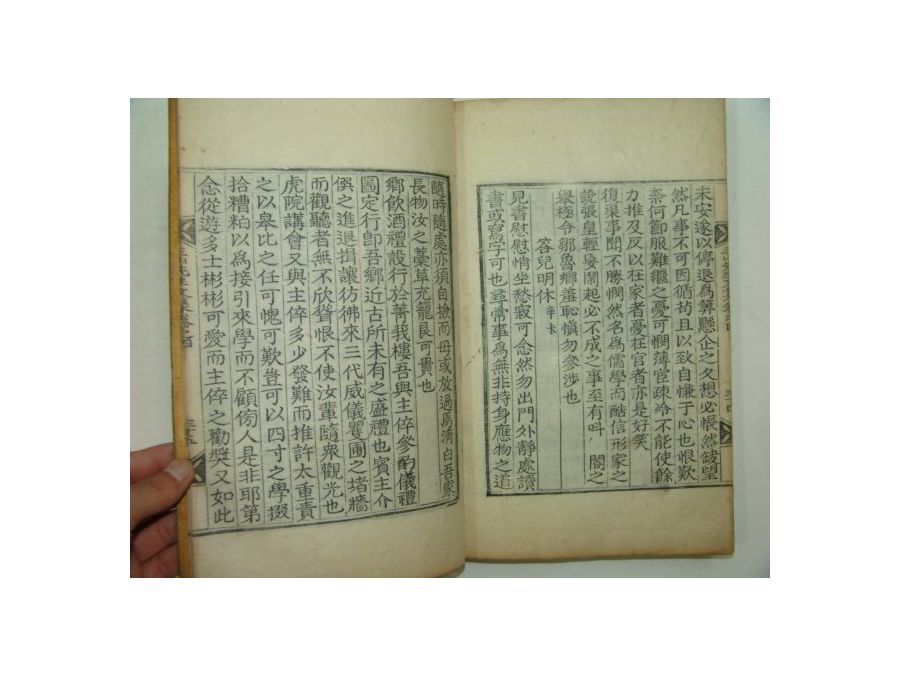 未安遂以停退爲算懸企之久想必悵然缺望
然凡事不可因循苟且以致自慊于心也恨歎
柰何節服難繼之憂可憫薄宦疎冷不能使餘
力推及反以在家者憂在官者亦是好笑
復渠事聞不勝憫然名爲儒學而酷信形家之
說張皇輕擧鬧起必不成之事至有叫 閤之
擧極令鄒魯鄕羞恥愼勿參涉也
答兒明休 辛卡
見書慰慰悄坐愁寂可念然勿出門外靜處讀
書或寫字可也尋常事爲無非持身應物之道
隨時隨處亦須自撿而毋或放過焉淸白吾家
長物汝之藁草充籠良可貴也
鄕飮酒禮設行於菁我樓吾與主倅參酌儀禮
圖定行卽吾鄕近古所未有之盛禮也賓主介
僎之進退揖讓彷彿來三代威儀矍圃之堵牆
而觀聽者無不欣聳恨不使汝輩隨衆觀光也
虎院講會又與主倅多少發難而推許太重責
之以皋比之任可愧可歎豈可以四寸之學掇
拾糟粕以爲接引來學而不顧傍人是非耶第
念從遊多士彬彬可愛而主倅之勸奬又如此